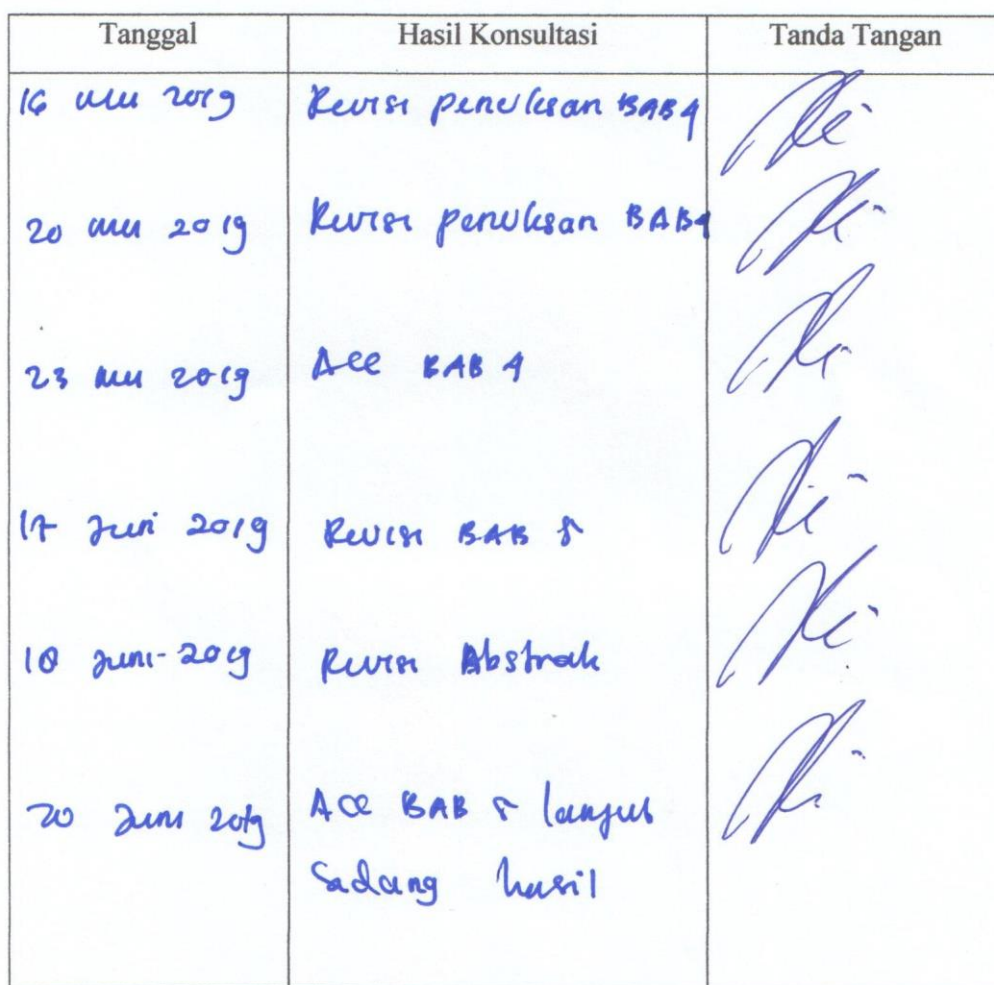 Tanggal Hasil Konsultasi Tanda Tangan
16 Mei 2019 Revisi penulisan BAB 4
20 Mei 2019 Revisi penulisan BAB 4
23 Mei 2019 Acc BAB 4
17 Juni 2019 Revisi BAB 5
18 Juni-2019 Revisi Abstrak
20 Juni 2019 Acc BAB 5 lanjut
Sadang hasil